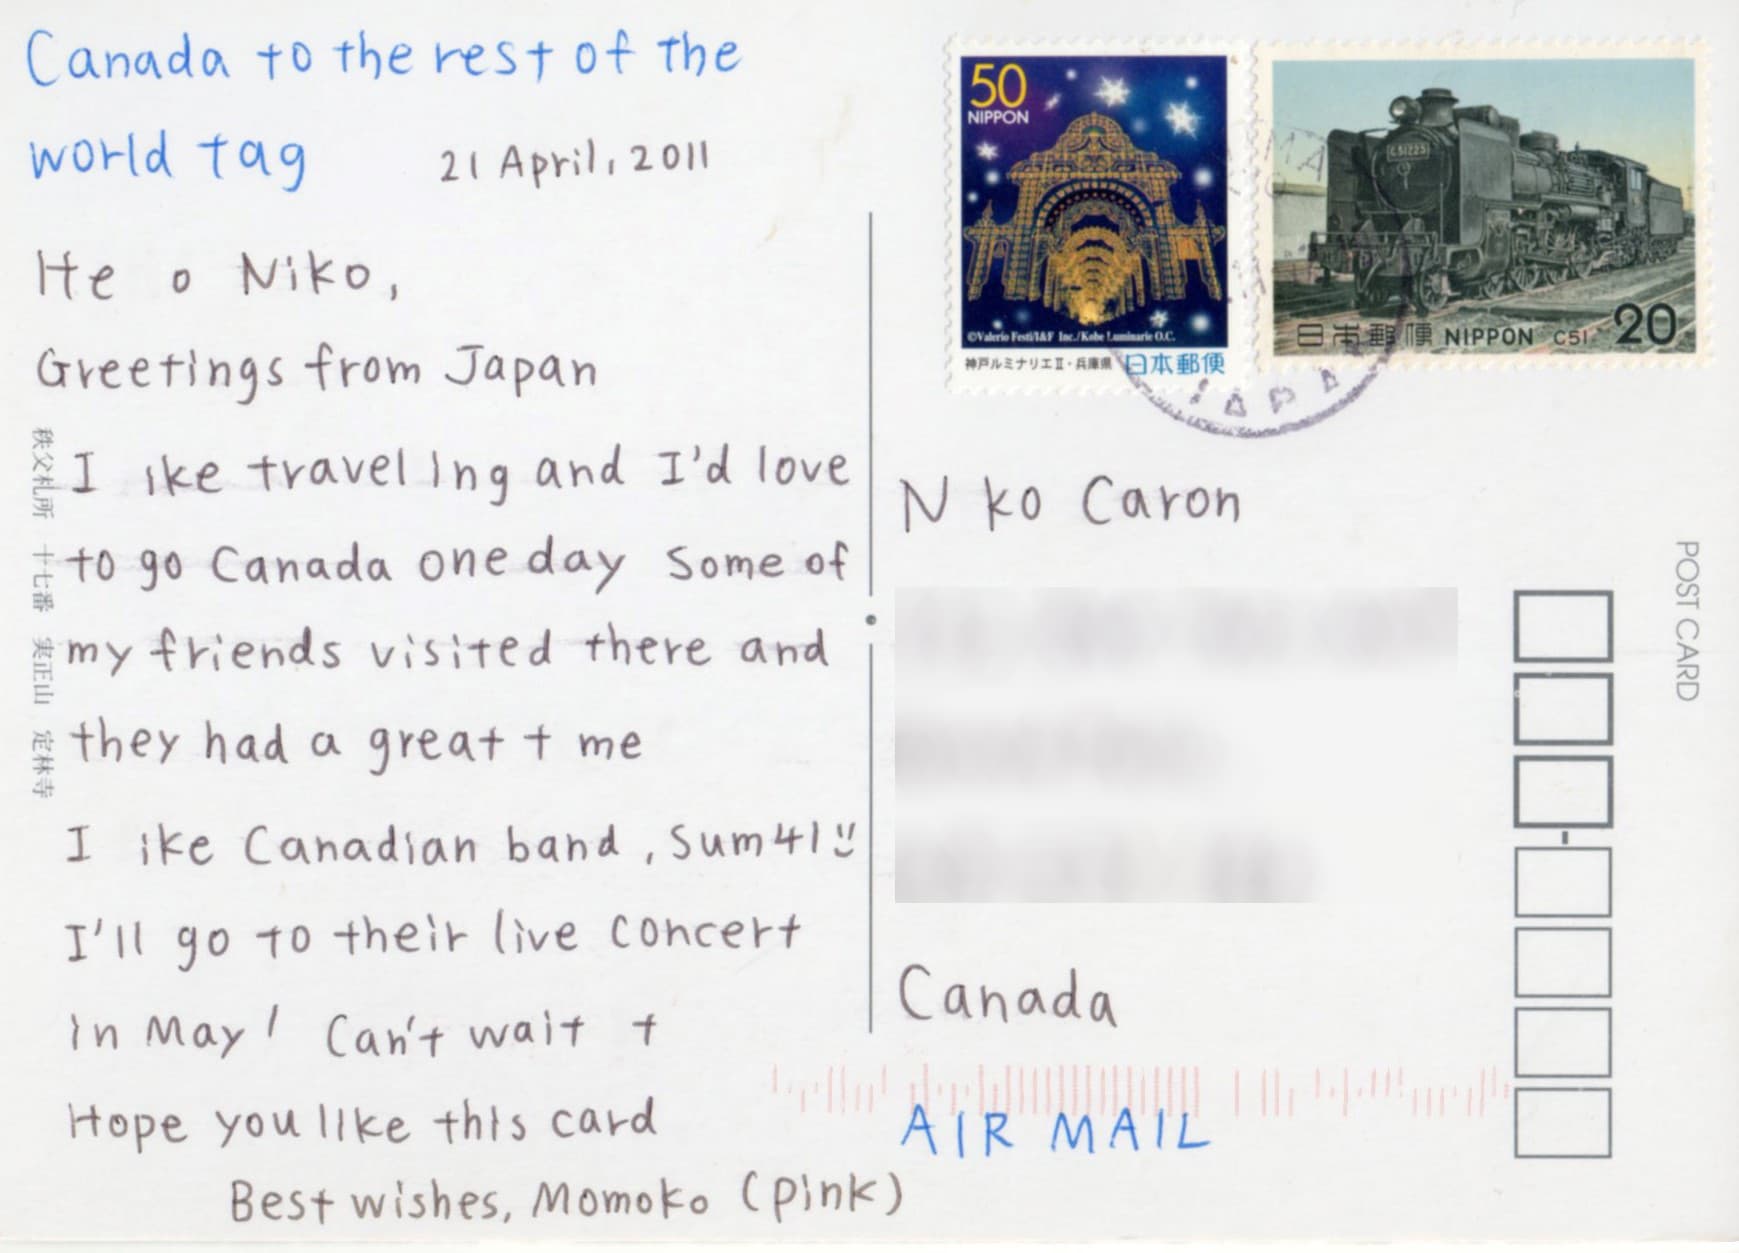 Canada to the rest of the
world tag 21 April, 2011
He o Niko,
Greetings from Japan
I ike traveling and I'd love
to go Canada one day Some of
my friends visited there and
they had a great t me
I ike Canadian band, Sum41
I'll go to their live concert
in May! Can't wait t
Hope you like this card
Best wishes, Momoko (pink)
秩父札所 十七番 実正山 定林寺
50
NIPPON
©Valerio Festi/I&F Inc./Kobe Luminarie O.C.
神戸ルミナリエⅡ・兵庫県 日本郵便
C51225
日本郵便 NIPPON C51 20
JAPAN
N ko Caron
Canada
AIR MAIL
POST CARD